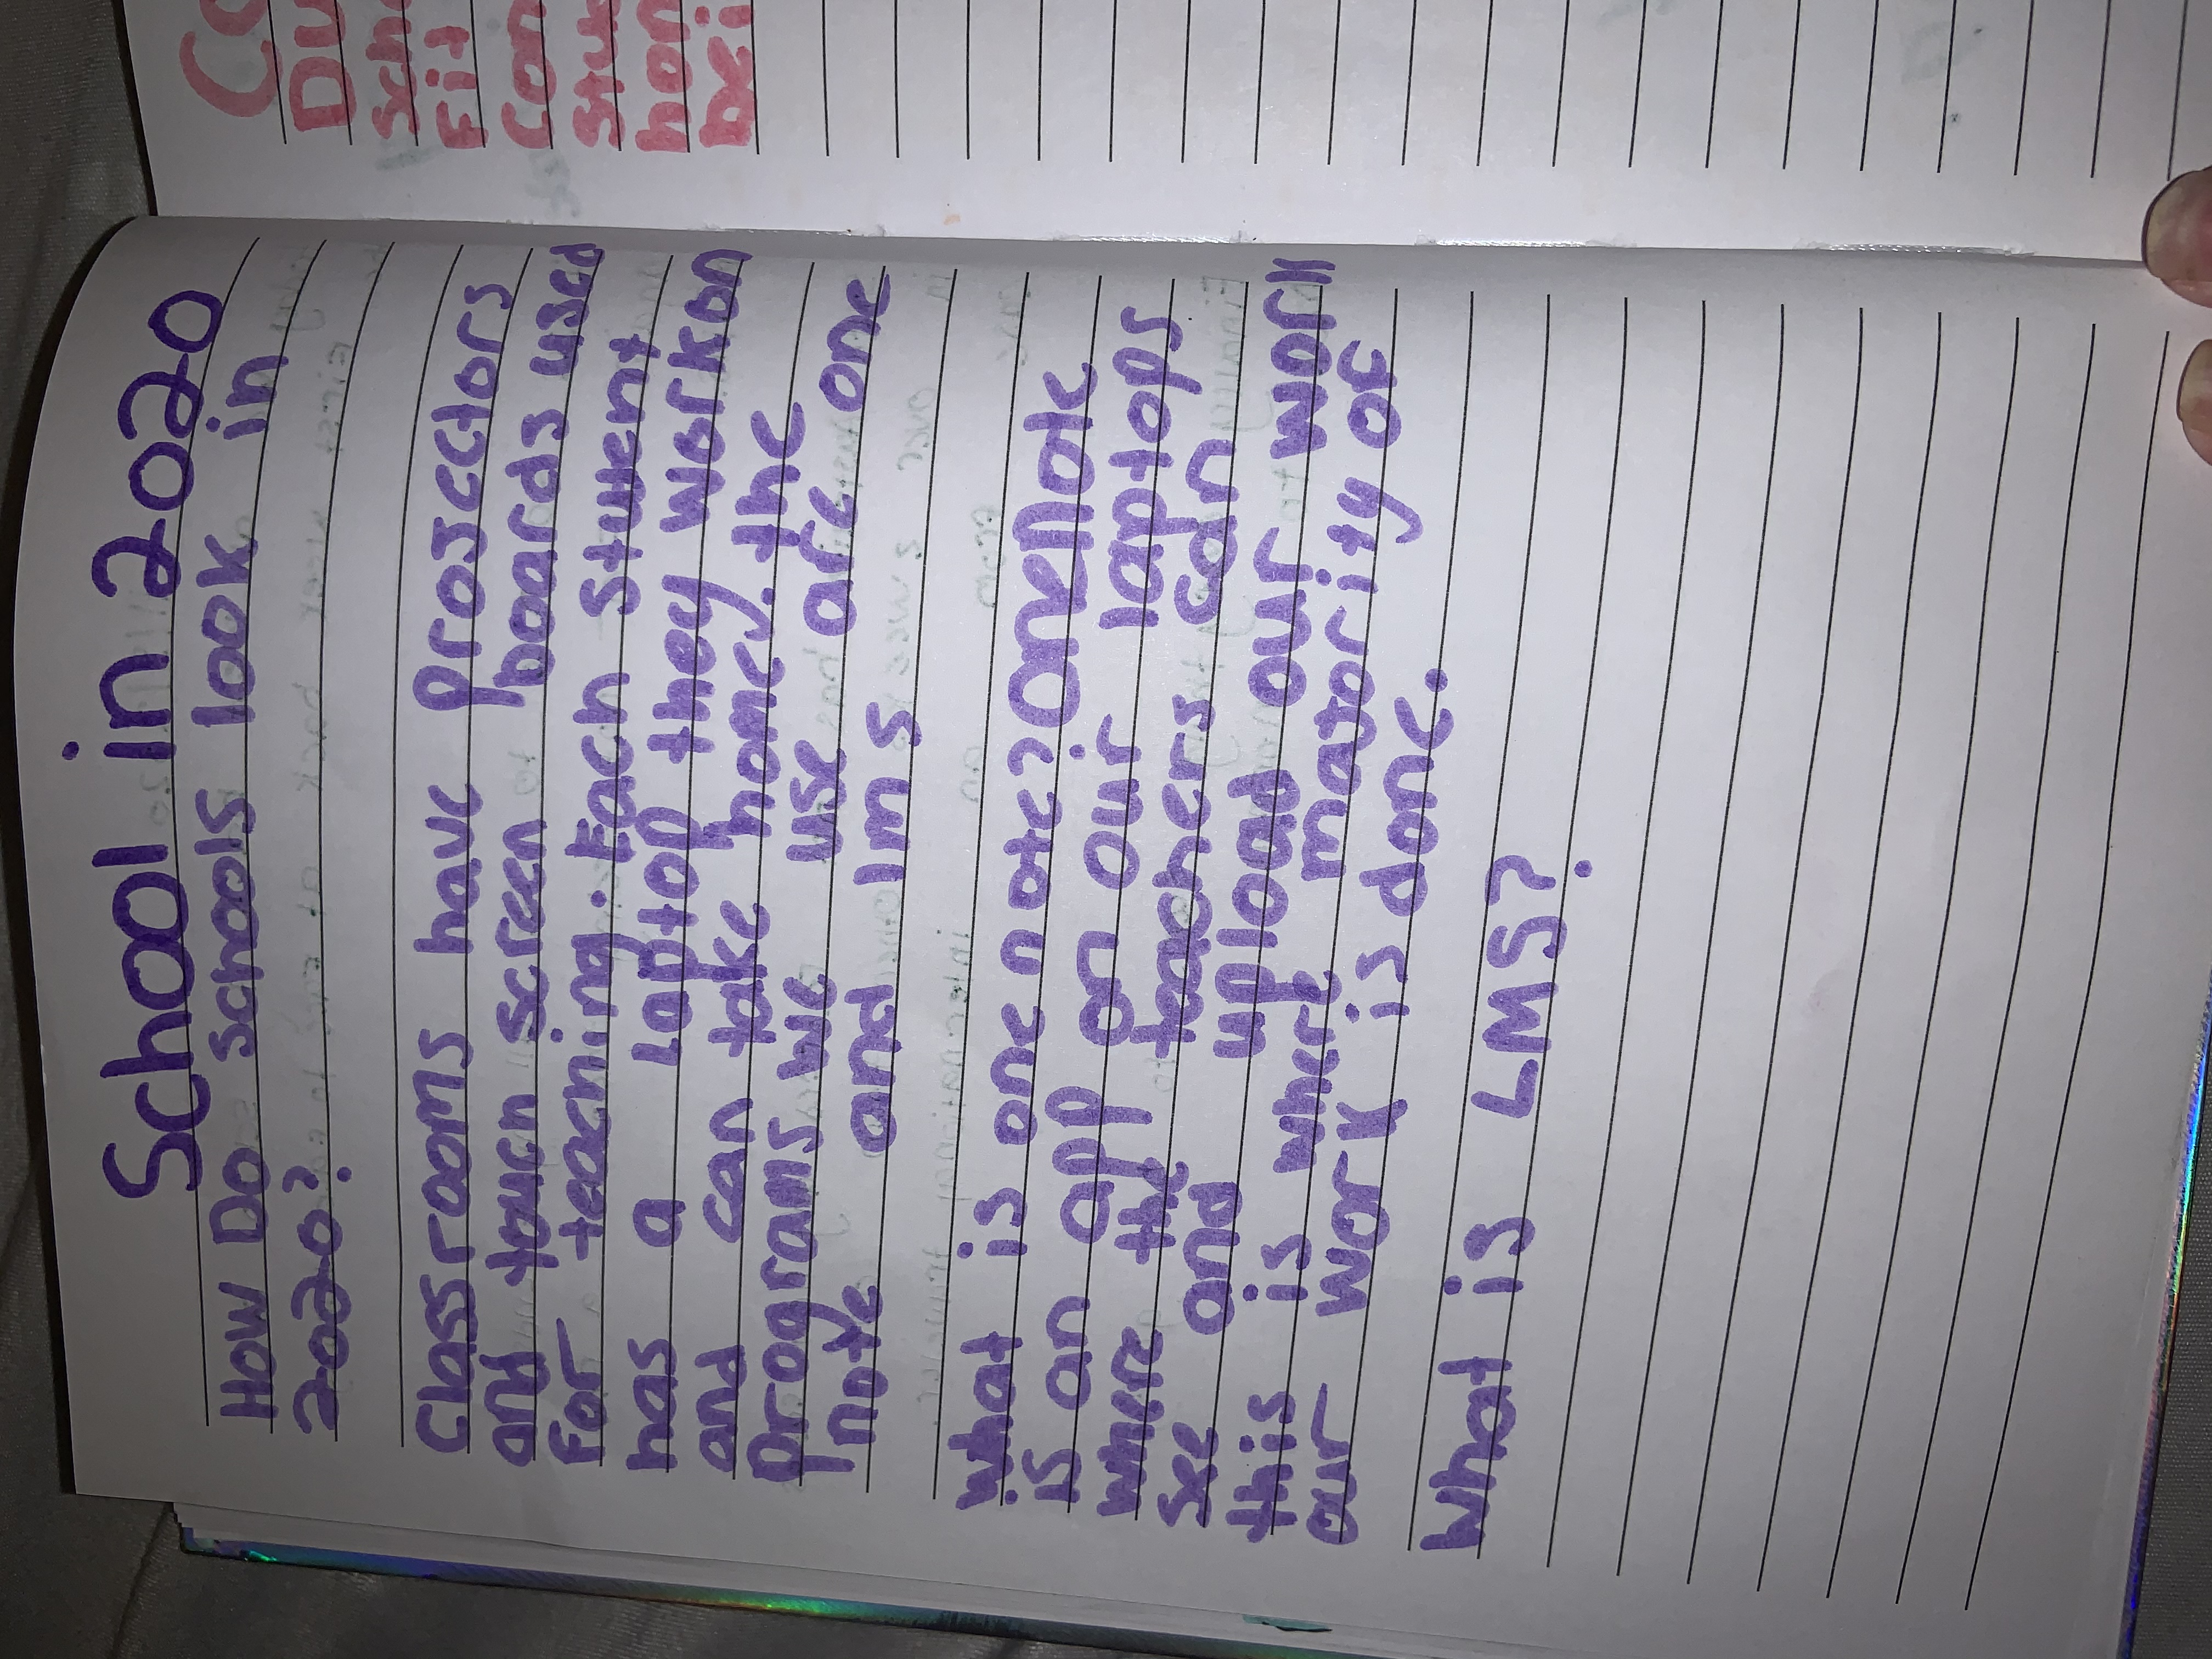 School in 2020
How Do schools look in
2020?
Classrooms have prosectors
and touch screen boards used
For teaching. Each student
has a Laptop they work on
and can take home. the
programs we use are one one
note and lms
what is one note? oneNote
is an app on our laptops
where the teachers can
see and upload our work
this is where matority of
our work is done.
What is LMS?
Du
Sch
Fit
Con
Stu
hom
bei